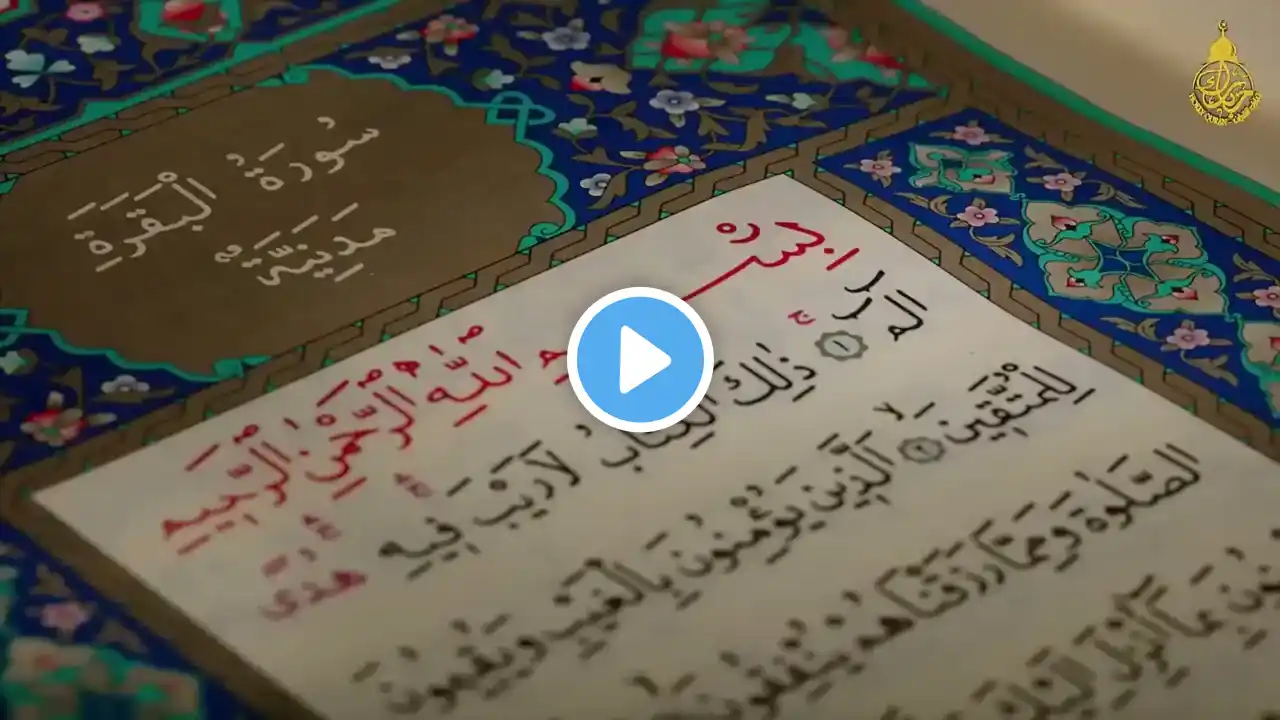 سُورَةُ الْبَقَرَةِ
مَدَنِيَّةٌ
بِسْمِ اللّٰهِ الرَّحْمٰنِ الرَّحِيمِ
الٓمٓ ١ ذٰلِكَ الْكِتَابُ لَا رَيْبَ فِيهِ هُدًى
لِلْمُتَّقِينَ ٢ اَلَّذِينَ يُؤْمِنُونَ بِالْغَيْبِ وَيُقِيمُونَ
الصَّلٰوةَ وَمِمَّا رَزَقْنَاهُمْ يُنْفِقُونَ
بِمَا اُنْزِلَ اِلَيْكَ